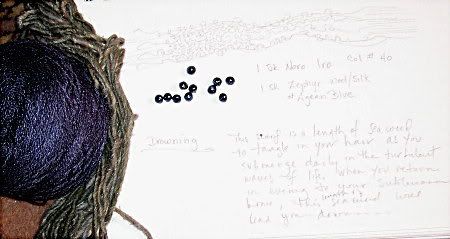 1 sk Noro Iro Col # 40
1 sk Zephyr wool/silk
Aegean Blue
Drowning
This scarf is a length of seaweed
to tangle in your hair as you
submerge daily in the turbulent
waves of life. When you return
in evening to your
home, this seaweed will
lead you down